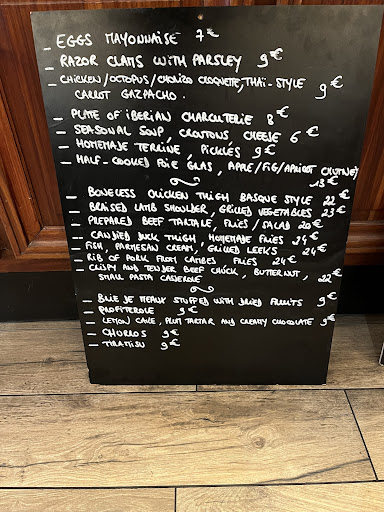 - EGGS MAYONNAISE 7€
- RAZOR CLAMS WITH PARSLEY 9€
- CHICKEN/OCTOPUS/CHORIZO CROQUETTE, THAÏ-STYLE
CARROT GAZPACHO. 9€
- PLATE OF IBERIAN CHARCUTERIE 8€
- SEASONAL SOUP, CROUTONS, CHEESE 6€
- HOMEMADE TERRINE, PICKLES 9€
- HALF-COOKED FOIE GLAS, APPLE/FIG/APRICOT CHUTNEY
13€
- BONELESS CHICKEN THIGH BASQUE STYLE 22€
- BRAISED LAMB SHOULDER, GRILLED VEGETABLES 23€
- PREPARED BEEF TARTALE, FRIES/SALAD 20€
- CANDIED DUCK THIGH HOMEMADE FRIES 24€
- FISH, PARMESAN CREAM, GRILLED LEEKS 24€
- RIB OF PORK FROM FRIES 24€
- CRISPY AND TENDER BEEF CHUCK, BUTTERNUT,
SMALL PASTA CASSEROLE 22€
- BRIE DE MEAUX STUFFED WITH DRIED FRUITS 9€
- PROFITEROLE 9€
- LEMON CAKE, FRUIT TARTAR AND CREAMY CHOCOLATE 9€
- CHURROS 9€
- TIRAMISU 9€